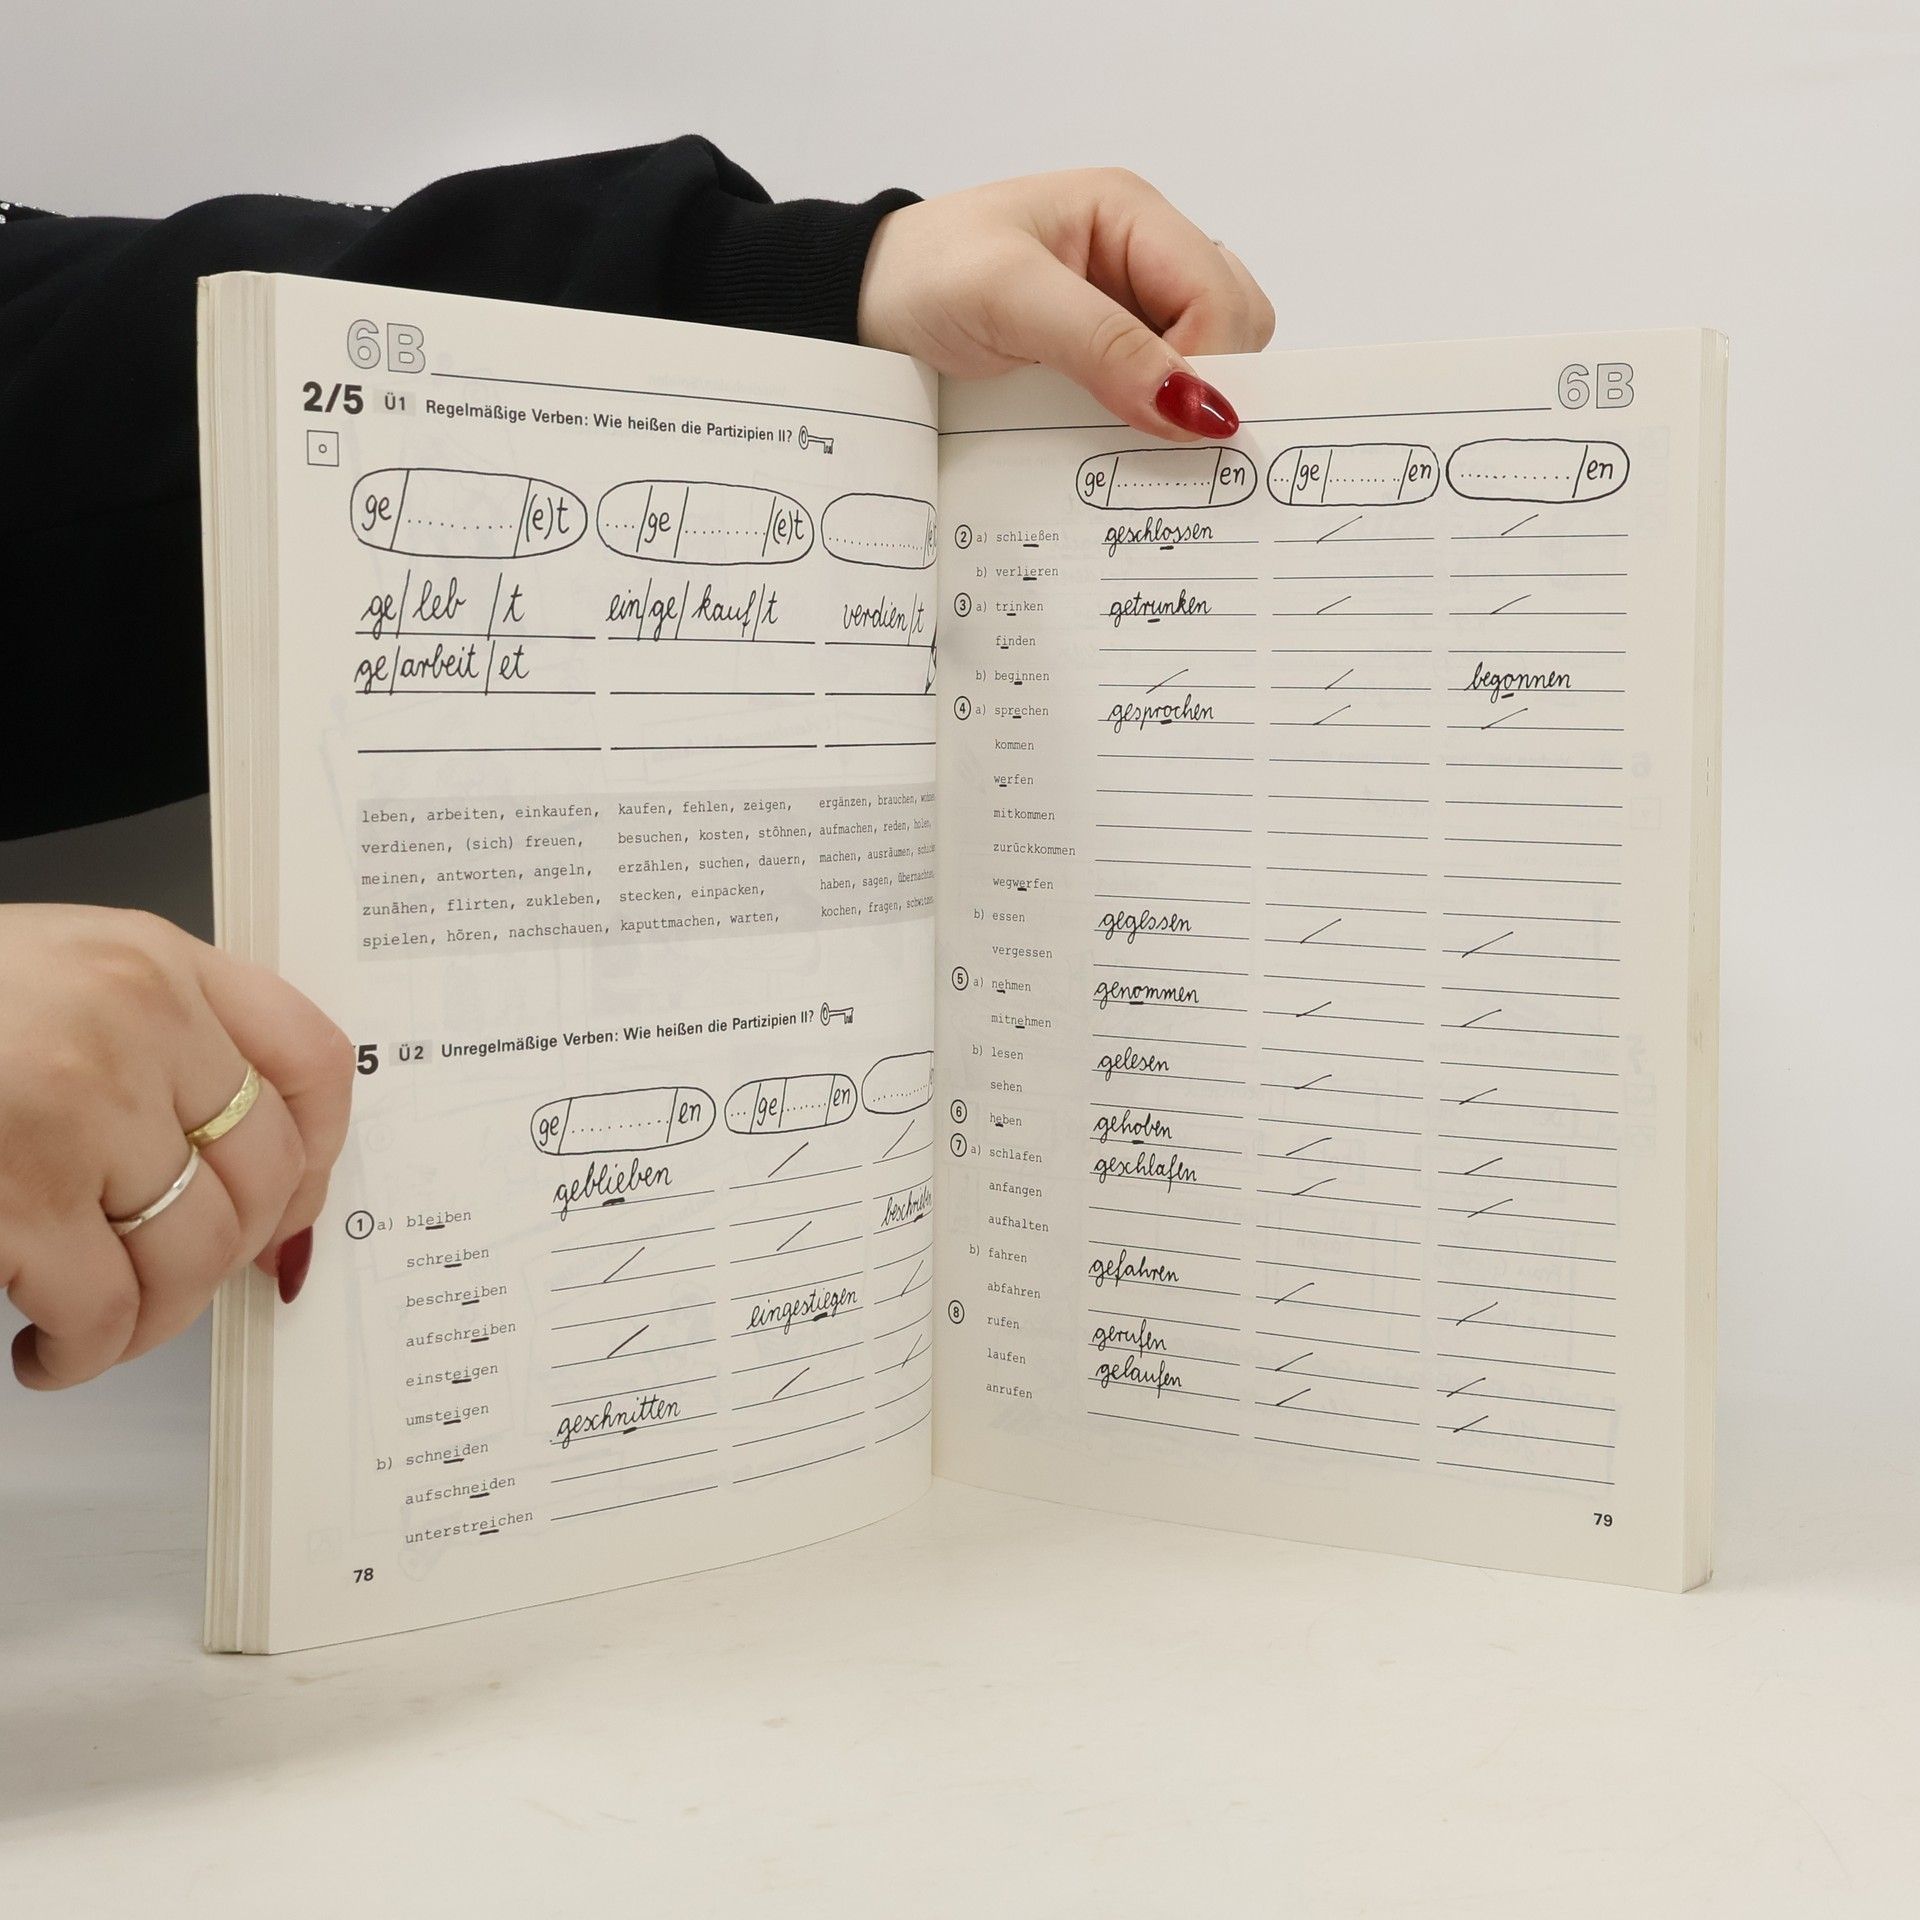 6B
2/5 Ü1 Regelmäßige Verben: Wie heißen die Partizipien II?
ge/............/(e)t ..../ge/........../(e)t ............../(e)t
ge/leb/t ein/ge/kauf/t verdien/t
ge/arbeit/et
leben, arbeiten, einkaufen, kaufen, fehlen, zeigen, ergänzen, brauchen, wohnen
verdienen, (sich) freuen, besuchen, kosten, stöhnen, aufmachen, reden, holen,
meinen, antworten, angeln, erzählen, suchen, dauern, machen, ausräumen,
zunähen, flirten, zukleben, stecken, einpacken, haben, sagen, übernachten,
spielen, hören, nachschauen, kaputtmachen, warten, kochen, fragen,
/5 Ü2 Unregelmäßige Verben: Wie heißen die Partizipien II?
ge/............/en .../ge/......./en
1 a) bleiben geblieben / /
schreiben
beschreiben / / beschrieben
aufschreiben
einsteigen / eingestiegen /
umsteigen
b) schneiden geschnitten / /
aufschneiden
unterstreichen
78
6B
ge/............/en .../ge/........../en ............/en
2 a) schließen geschlossen / /
b) verlieren
3 a) trinken getrunken / /
finden
b) beginnen / / begonnen
4 a) sprechen gesprochen / /
kommen
werfen
mitkommen
zurückkommen
wegwerfen
b) essen gegessen / /
vergessen
5 a) nehmen genommen / /
mitnehmen
b) lesen gelesen / /
sehen
6 heben gehoben / /
7 a) schlafen geschlafen / /
anfangen
aufhalten
b) fahren gefahren / /
abfahren
8 rufen gerufen / /
laufen gelaufen / /
anrufen
79